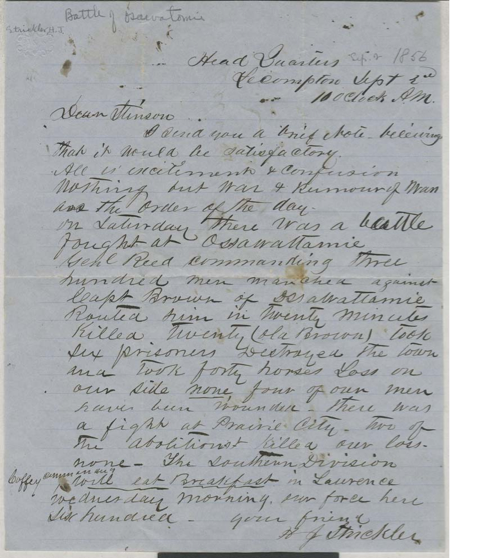 Battle of Osawatomie
Strickler, H. J.
Sep. 2 1856
Head Quarters
Lecompton Sept 1st
10 Oclock A.M.
Dear Stinson
I send you a brief Note believing
that it would be satisfactory.
All is excitement & confusion
Nothing but War & Rumour of War
are the order of the day.
on Saturday there was a battle
fought at Ossawattamie
Genl Reed commanding three
hundred men marched against
Capt Brown of Ossawattamie
Routed him in twenty minutes
Killed twenty (old Brown) took
six prisoners Destroyed the town
and took forty horses Loss on
our side none four of our men
have been wounded - there was
a fight at Prairie City - two of
the abolitionist killed our loss
none - The Southern Division
Coffey commanding
will eat Breakfast in Laurence
wednesday morning. our force here
six hundred - your friend
H J Strickler